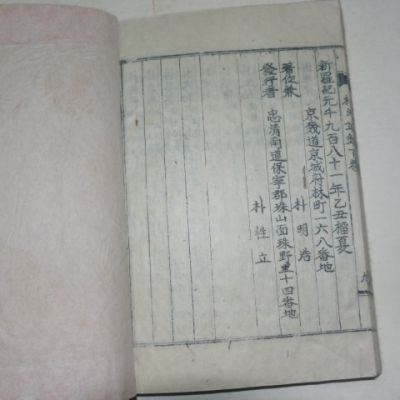 新羅紀元千九百八十一年乙丑榴夏
京畿道京城府林町一六八番地
著作兼 朴明浩
忠淸南道保寧郡珠山面珠野里十四番地
發行者 朴性立